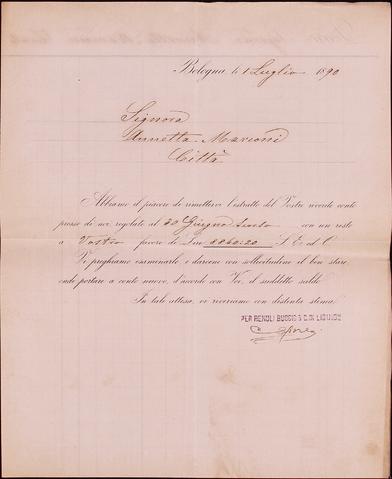 Bologna, li 1 Luglio 1890
Signora
Annetta Marconi
Città
Abbiamo il piacere di rimettervi l'estratto del Vostro ricorde conto
presso di noi regolato al 30 Giugno con un resto
a Vostro favore di Lire S. E. ed O.
Vi preghiamo esaminarlo e darcene con sollecitudine il ben stare,
onde portare a conto nuovo, d'accordo con Voi, il suddetto saldo.
In tale attesa, vi riveriamo con distinta stima.
PER RENOLI BUGGIO & C. IN LIQUIDNE